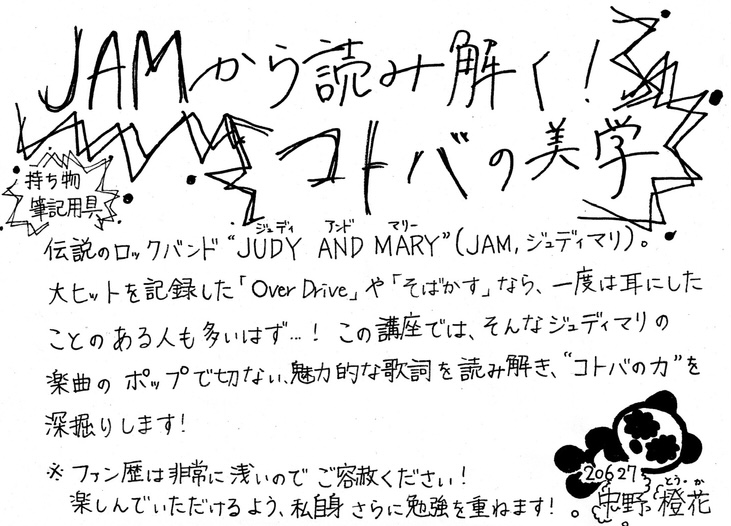 JAMから読み解く!
コトバの美学
持ち物
筆記用具
ジュディ アンド マリー
伝説のロックバンド“JUDY AND MARY”(JAM,ジュディマリ)。
大ヒットを記録した「Over Drive」や「そばかす」なら、一度は耳にした
ことのある人も多いはず…! この講座では、そんなジュディマリの
楽曲のポップで切ない、魅力的な歌詞を読み解き、“コトバの力”を
深掘りします!
※ファン歴は非常に浅いのでご容赦ください!
楽しんでいただけるよう、私自身さらに勉強を重ねます!。
20627
とうか
中野橙花